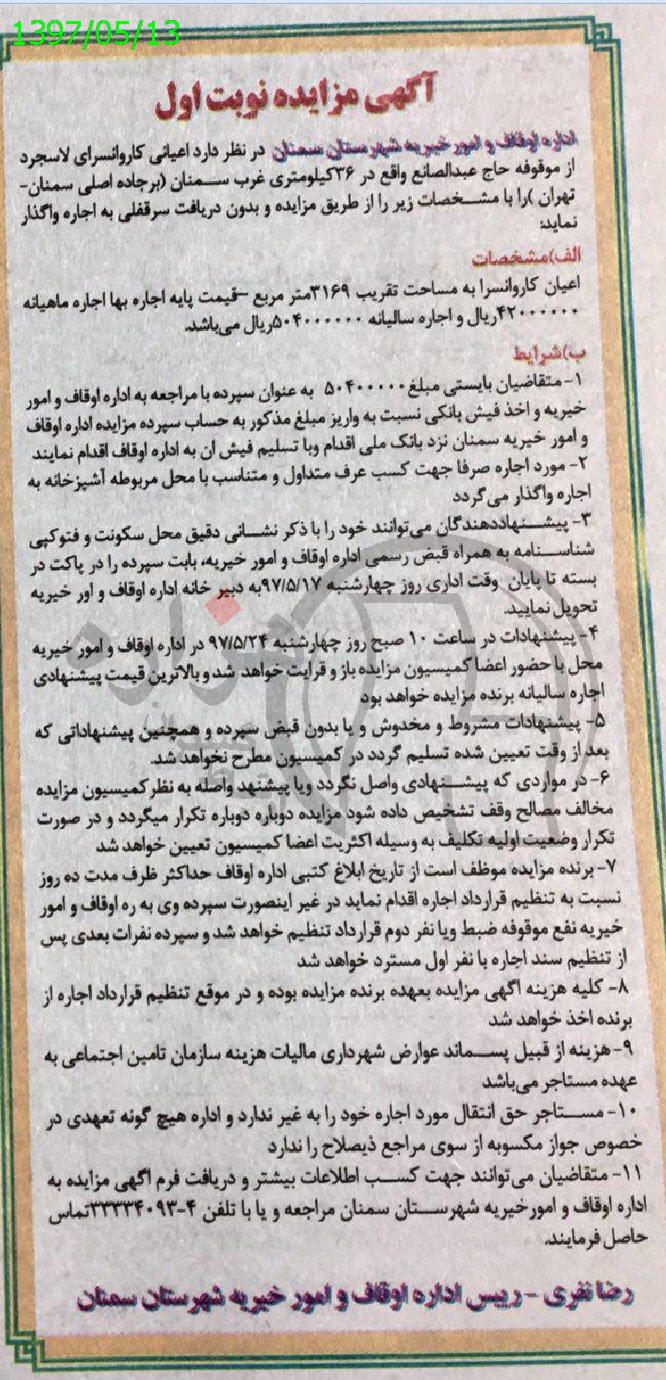 1397/05/13
آگهی مزایده نوبت اول
اداره اوقاف و امور خیریه شهرستان سمنان در نظر دارد اعیانی کاروانسرای لاسجرد
از موقوفه حاج عبدالصانع واقع در ۳۶کیلومتری غرب سمنان (برجاده اصلی سمنان-
تهران )را با مشخصات زیر را از طریق مزایده و بدون دریافت سرقفلی به اجاره واگذار
نماید:
الف)مشخصات
اعیان کاروانسرا به مساحت تقریب ۳۱۶۹متر مربع –قیمت پایه اجاره بها اجاره ماهیانه
۴۲۰۰۰۰۰۰ریال و اجاره سالیانه ۵۰۴۰۰۰۰۰۰ریال می‌باشد.
ب)شرایط
۱- متقاضیان بایستی مبلغ۵۰۴۰۰۰۰۰ به عنوان سپرده با مراجعه به اداره اوقاف و امور
خیریه و اخذ فیش بانکی نسبت به واریز مبلغ مذکور به حساب سپرده مزایده اداره اوقاف
و امور خیریه سمنان نزد بانک ملی اقدام وبا تسلیم فیش ان به اداره اوقاف اقدام نمایند
۲- مورد اجاره صرفا جهت کسب عرف متداول و متناسب با محل مربوطه آشپزخانه به
اجاره واگذار می‌گردد
۳- پیشنهاددهندگان می‌توانند خود را با ذکر نشانی دقیق محل سکونت و فتوکپی
شناسنامه به همراه قبض رسمی اداره اوقاف و امور خیریه، بابت سپرده را در پاکت در
بسته تا پایان وقت اداری روز چهارشنبه ۹۷/۵/۱۷به دبیر خانه اداره اوقاف و اور خیریه
تحویل نمایید.
۴- پیشنهادات در ساعت ۱۰ صبح روز چهارشنبه ۹۷/۵/۲۴ در اداره اوقاف و امور خیریه
محل با حضور اعضا کمیسیون مزایده باز و قرایت خواهد شد و بالاترین قیمت پیشنهادی
اجاره سالیانه برنده مزایده خواهد بود
۵- پیشنهادات مشروط و مخدوش و یا بدون قبض سپرده و همچنین پیشنهاداتی که
بعد از وقت تعیین شده تسلیم گردد در کمیسیون مطرح نخواهد شد.
۶- در مواردی که پیشنهادی واصل نگردد ویا پیشنهد واصله به نظر کمیسیون مزایده
مخالف مصالح وقف تشخیص داده شود مزایده دوباره دوباره تکرار میگردد و در صورت
تکرار وضعیت اولیه تکلیف به وسیله اکثریت اعضا کمیسیون تعیین خواهد شد
۷- برنده مزایده موظف است از تاریخ ابلاغ کتبی اداره اوقاف حداکثر ظرف مدت ده روز
نسبت به تنظیم قرارداد اجاره اقدام نماید در غیر اینصورت سپرده وی به ره اوقاف و امور
خیریه نفع موقوفه ضبط ویا نفر دوم قرارداد تنظیم خواهد شد و سپرده نفرات بعدی پس
از تنظیم سند اجاره با نفر اول مسترد خواهد شد
۸- کلیه هزینه اگهی مزایده بعهده برنده مزایده بوده و در موقع تنظیم قرارداد اجاره از
برنده اخذ خواهد شد
۹- هزینه از قبیل پسماند عوارض شهرداری مالیات هزینه سازمان تامین اجتماعی به
عهده مستاجر می‌باشد
۱۰- مستاجر حق انتقال مورد اجاره خود را به غیر ندارد و اداره هیچ گونه تعهدی در
خصوص جواز مکسوبه از سوی مراجع ذیصلاح را ندارد
۱۱- متقاضیان می‌توانند جهت کسب اطلاعات بیشتر و دریافت فرم اگهی مزایده به
اداره اوقاف و امورخیریه شهرستان سمنان مراجعه و یا با تلفن ۴-۳۳۳۳۴۰۹۳تماس
حاصل فرمایند.
رضا نفری – رییس اداره اوقاف و امور خیریه شهرستان سمنان